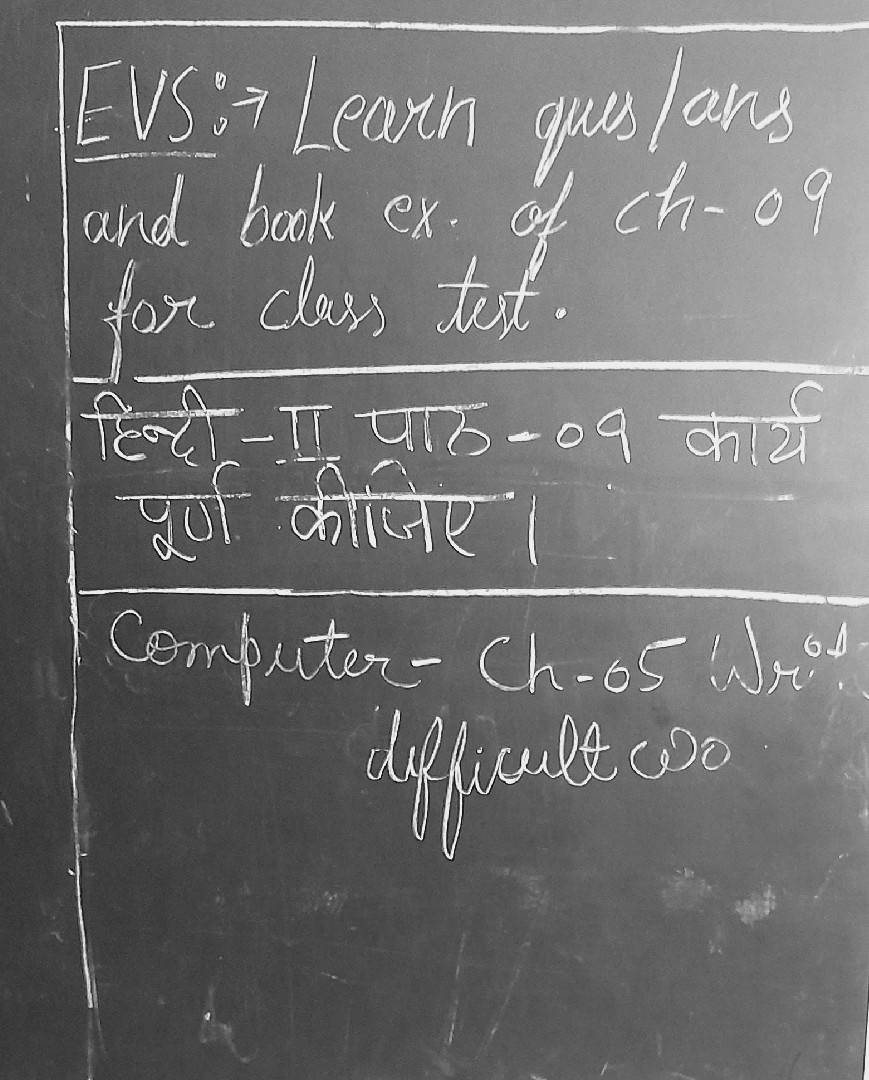 EVS:→ Learn ques/ans
and book ex. of ch-09
for class test.
हिन्दी-II पाठ-०९ कार्य
पूर्ण कीजिए।
Computer- Ch-05
difficult wo